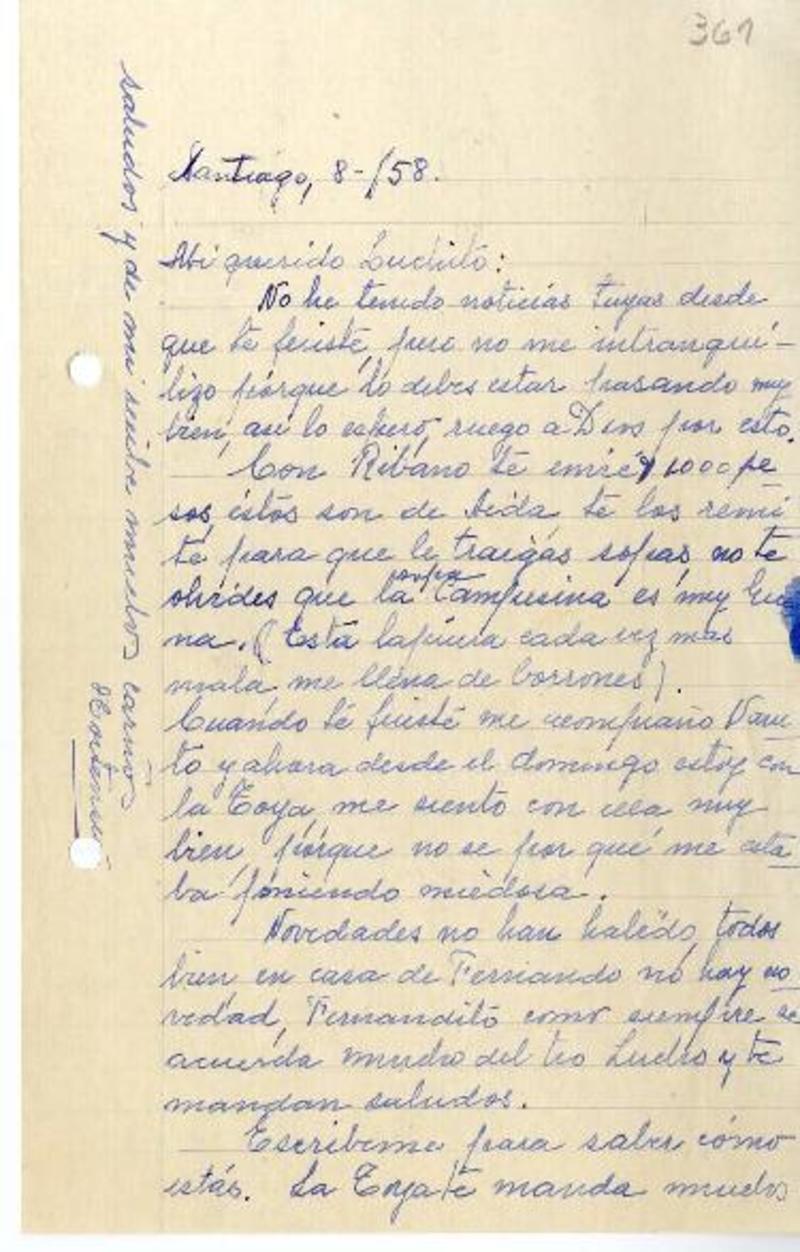 361
Santiago, 8-/58.
Mi querido Luchito:
No he tenido noticias tuyas desde
que te fuiste, pero no me intranqui-
lizo pórque lo debes estar pasando muy
bien, asi lo espero, ruego a Dios por esto.
Con Ribano te envié 1000 pe
sos, éstos son de Aida, te los remi
te para que le traigas sopas, no te
olvides que la sopa Campesina es muy bue
na. (Esta lapicera cada vez mas
mala, me llena de borrones).
Cuando te fuiste me acompaño
to y ahora desde el domingo estoy con
la Toya, me siento con ella muy
bien, pórque no se por qué me esta
ba poniendo miedosa.
Novedades no han habido, todos
bien, en casa de Fernando no hay no
vedad, Fernandito como siempre se
acuerda mucho del tio Lucho y te
mandan saludos.
Escribeme para saber cómo
estás. La Toya te manda muchos
saludos y de mi recibe muchos cariños
Hortensia